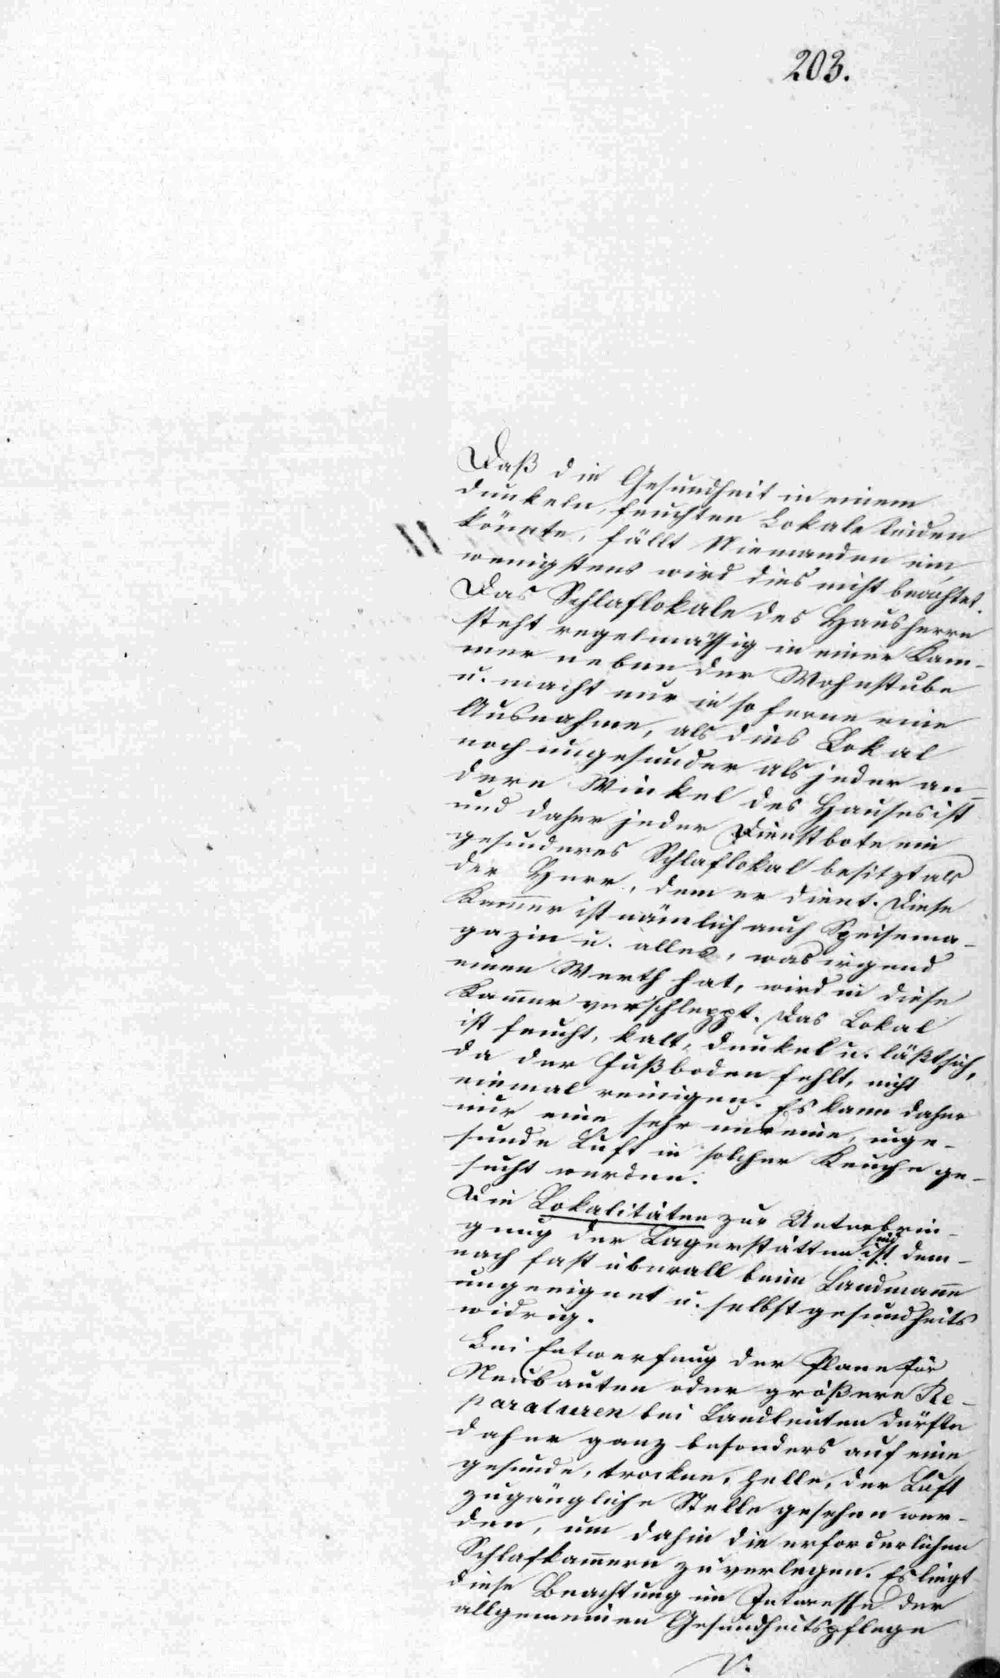 203.
Daß die Gesundheit in einem
dunkeln feuchten Lokale leiden
könnte, fällt Niemanden ein,
wenigstens wird dies nicht beachtet.
Das Schlaflokale des Hausherrn
steht regelmässig in einer Kam-
mer neben der Wohnstube
u. macht nur in soferne eine
Ausnahme, als dies Lokal
noch ungesunder als jeder an-
dere Winkel des Hauses ist
und daher jeder Dienstbote ein
gesunderes Schlaflokal besitzt als
der Herr, dem er dient. Diese
Kammer ist nämlich auch Speisema-
gazin u. alles, was irgend
einen Werth hat, wird in diese
Kammer verschleppt. Das Lokal
ist feucht, kalt, dunkel u. läßt sich,
da der Fußboden fehlt, nicht
einmal reinigen. Es kann daher
nur eine sehr unreine, unge-
sunde Luft in solcher Keuche ge-
sucht werden.
Die Lokalitäten zur Unterbrin-
gung der Lagerstätten ist sind dem-
nach fast überall beim Landmann
ungeeignet u. selbst gesundheits
widrig.
Bei Entwerfung der Plane für
Neubauten oder größere Re-
paraturen bei Landleuten dürfte
daher ganz besonders auf eine
gesunde, trockne, helle, der Luft
zugängliche Stelle gesehen wer-
den, um dahin die erforderlichen
Schlafkammern zu verlegen. Es liegt
diese Beachtung im Interesse der
allgemeinen Gesundheitspflege